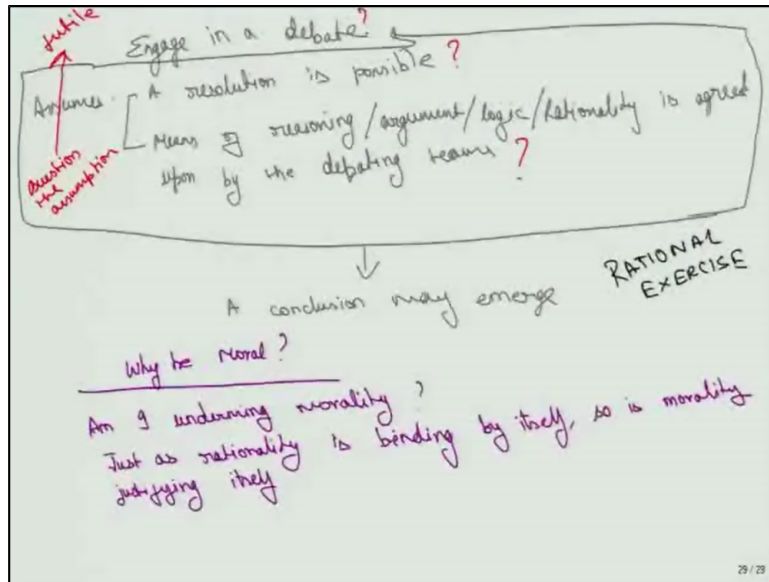 futile
Engage in a debate?
Assumes - A resolution is possible?
- Means of reasoning/argument/logic/Rationality is agreed
upon by the debating teams?
question
the
assumption
A conclusion may emerge
RATIONAL
EXERCISE
Why be Moral?
Am I undermining morality?
Just as rationality is binding by itself, so is morality
justifying itself
29 / 29